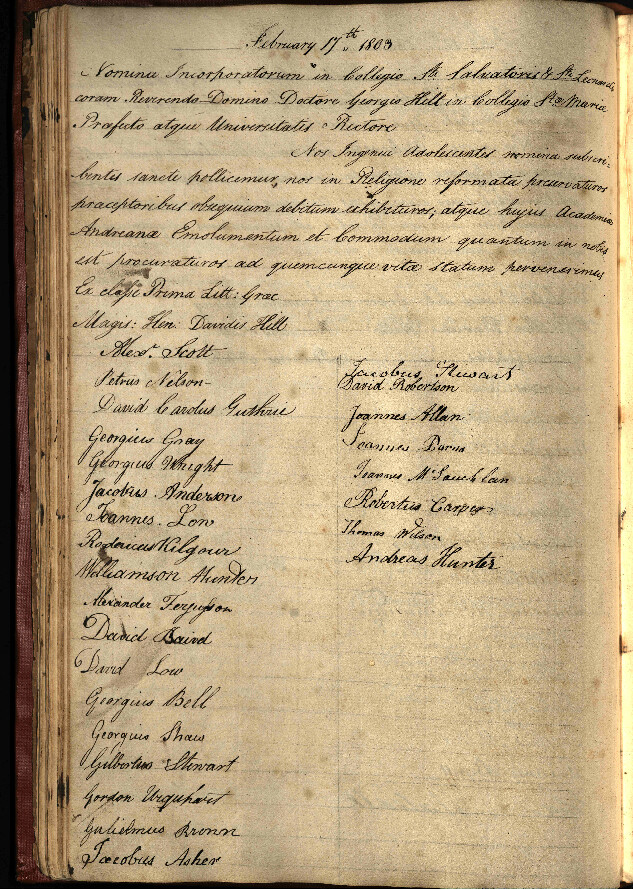 February 17th 1803
Nomina Incorporatorum in Collegio Sti Salvatoris & Sti Leonardi
coram Reverendo Domino Doctore Georgio Hill in Collegio Stæ Mariæ
Præfecto atque Universitatis Rectore
Nos Ingenui Adolescentes nomina subscri-
bentes sancte pollicemur, nos in Religione reformata perseveraturos
præceptoribus obsequium debitum exhibituros, atque hujus Academiæ
Andreanæ Emolumentum et Commodum quantum in nobis
est procuraturos ad quemcunque vitæ statum pervenerimus
Ex classe Prima Litt: Græc
Magis: Hen: Davidis Hill
Alexr. Scott
Petrus Nilson
David Carolus Guthrie
Georgius Gray
Georgius Wright
Jacobus Anderson
Joannes Low
Rodericus Kilgour
Williamson Hunter
Alexander Fergusson
David Baird
David Low
Georgius Bell
Georgius Shaw
Gilbertus Stewart
Gordon Urquhart
Gulielmus Brown
Jacobus Asher
Jacobus Stewart
David Robertson
Joannes Allan
Joannes
Joannes
Robertus
Thomas Wilson
Andreas Hunter